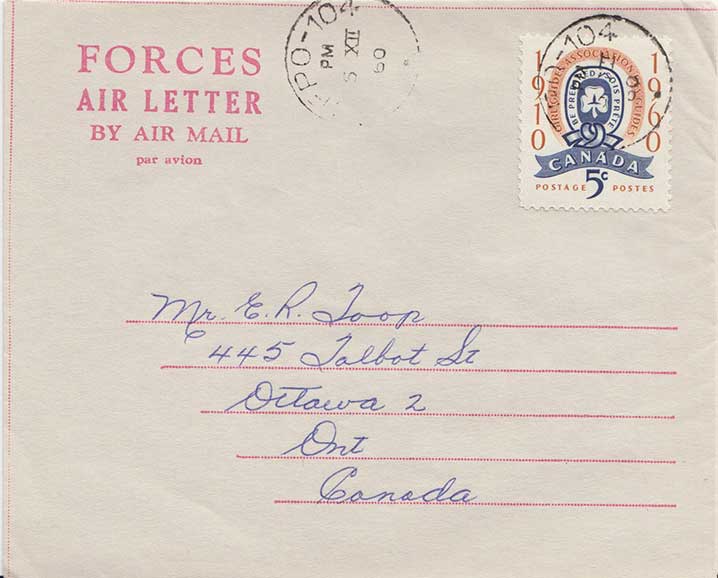 FORCES
AIR LETTER
BY AIR MAIL
par avion
-104
PM
5 XII
60
O-104
PM
1910
GIRL GUIDES ASSOCIATION GUIDES
1960
BE PREPARED SOIS PRÊTE
CANADA
POSTAGE 5c POSTES
Mr. E. R. Toop
445 Talbot St
Ottawa 2
Ont
Canada